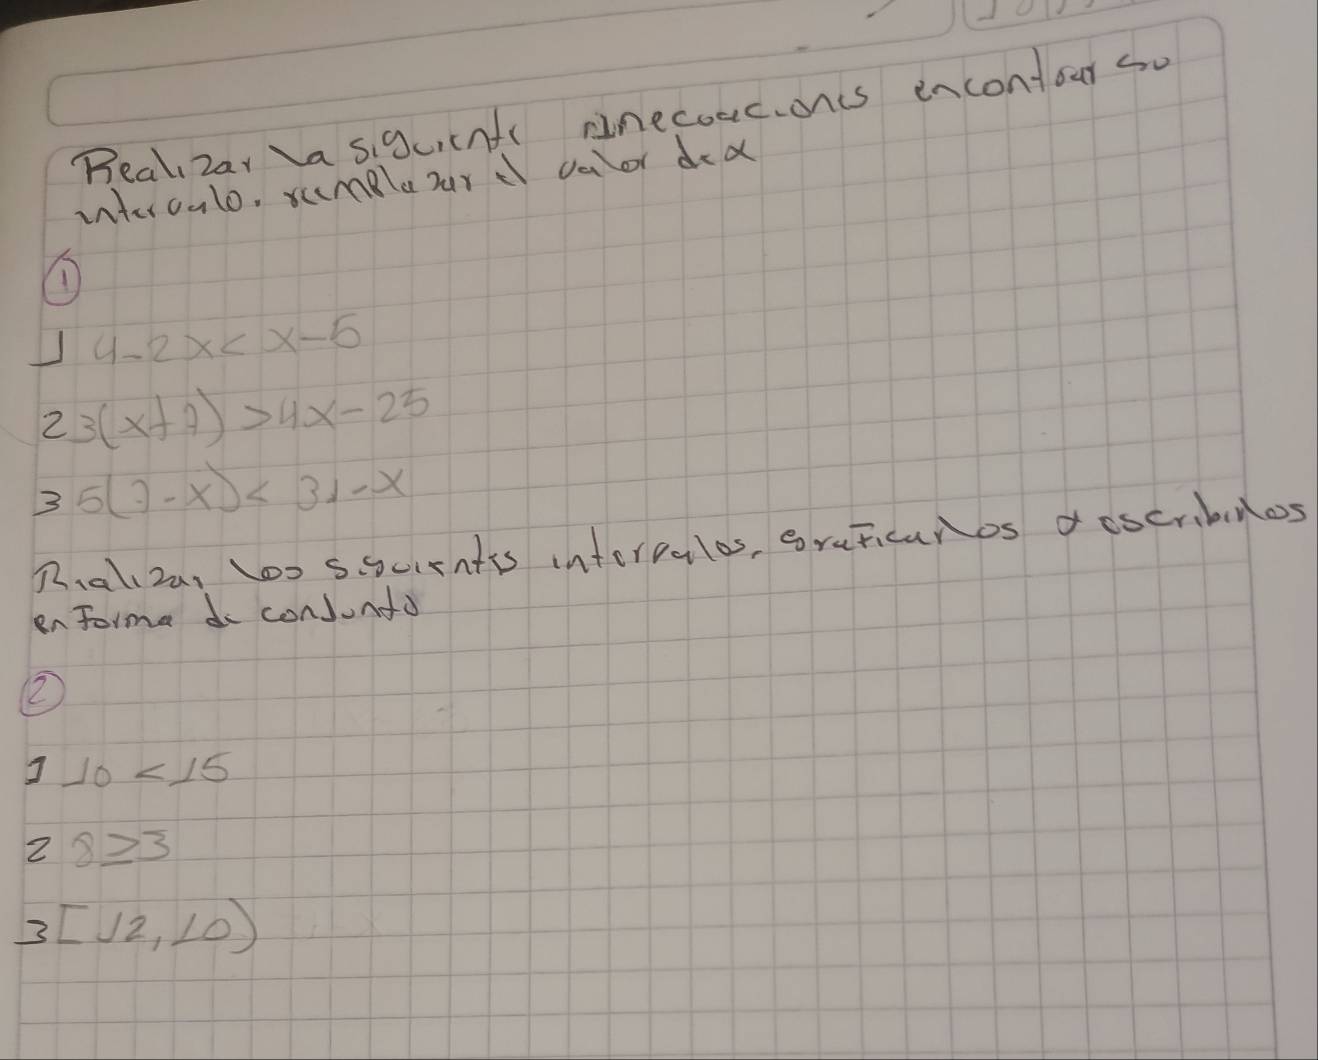 Realizar la siguiente inecuaciones encontrar su
intervalo. remplazar el valor de x
①
1 4-2x<x-5
2 3(x+7)>4x-25
3 5(7-x)<31-x
Realizar los siguientes intervalos, graficarlos y escribirlos
en forma de conjunto
②
1 10<15
2 8≥3
3 [12,10)